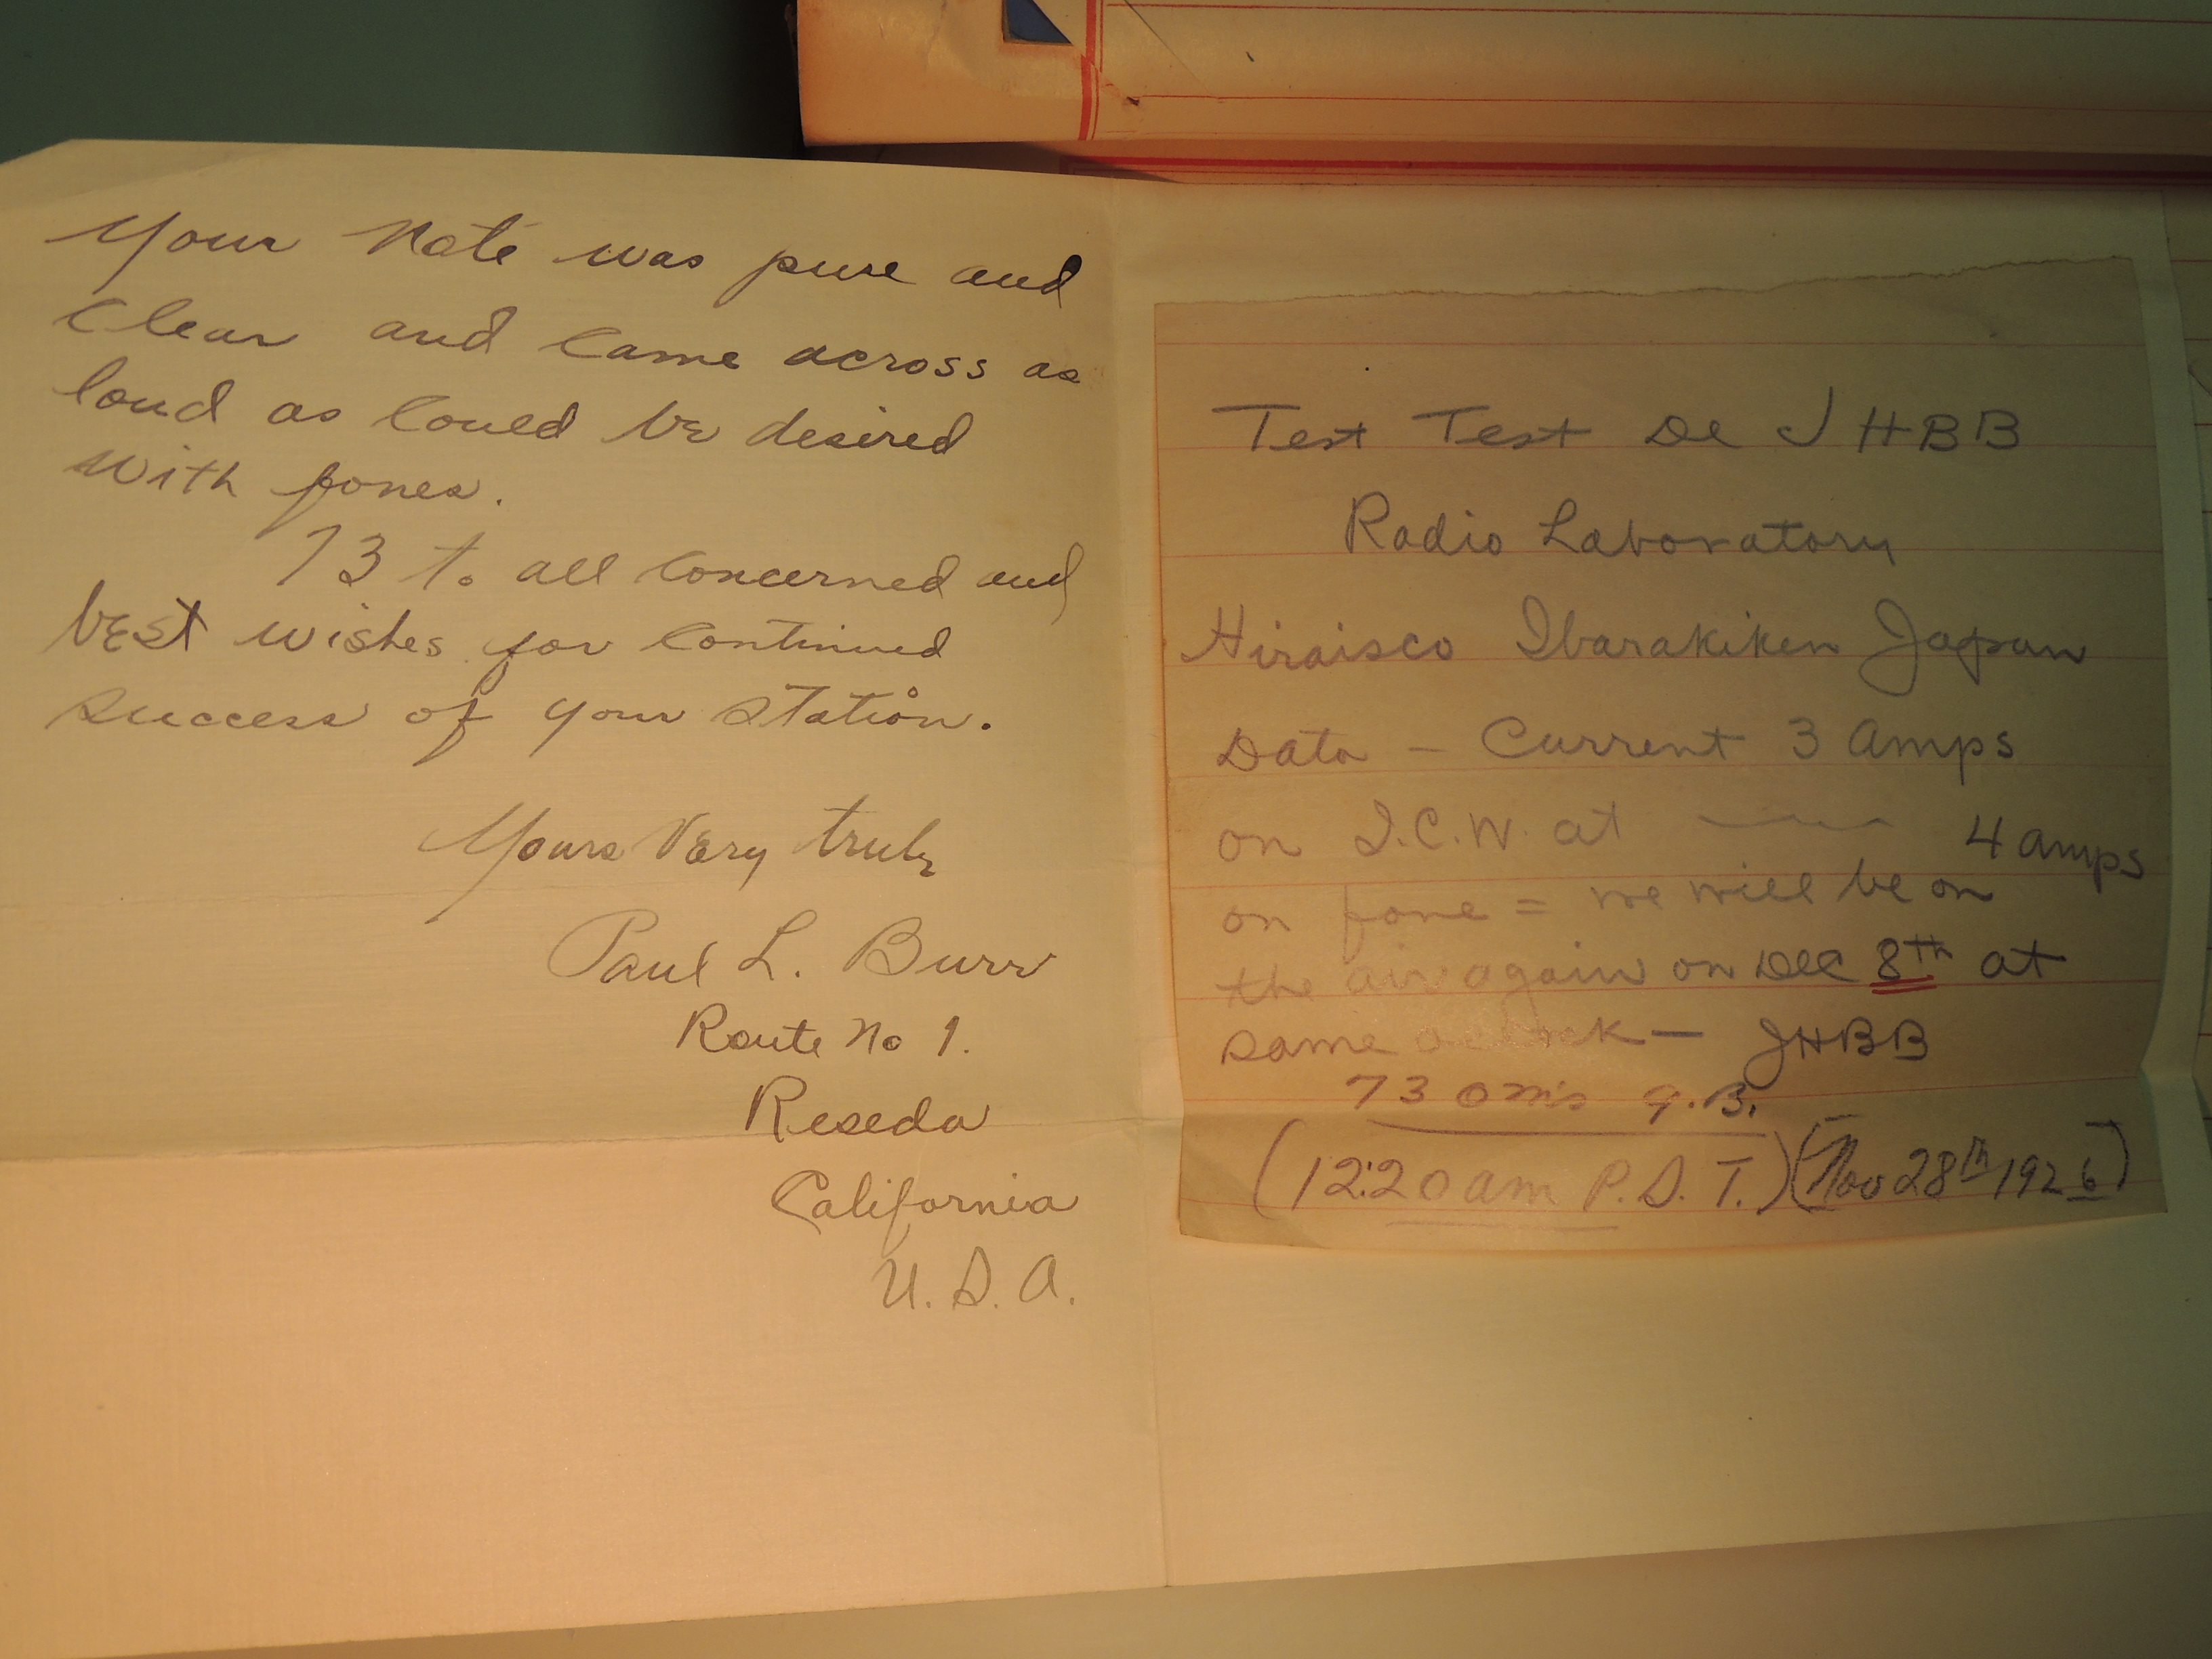 Your note was pure and
clear and came across as
loud as could be desired
with fones.
73 to all concerned and
best wishes for continued
success of your station.
Yours Very truly
Paul L. Burr
Route No 1.
Reseda
California
U. S. A.
Test Test De JHBB
Radio Laboratory
Hiraisco Ibarakiken Japan
Data - Current 3 Amps
on I.C.W. at 4 amps
on fone = we will be on
the air again on Dec 8th at
same oclock — JHBB
73 om's g.B.
(12:20 am P.S.T.) (Nov 28th 1926)